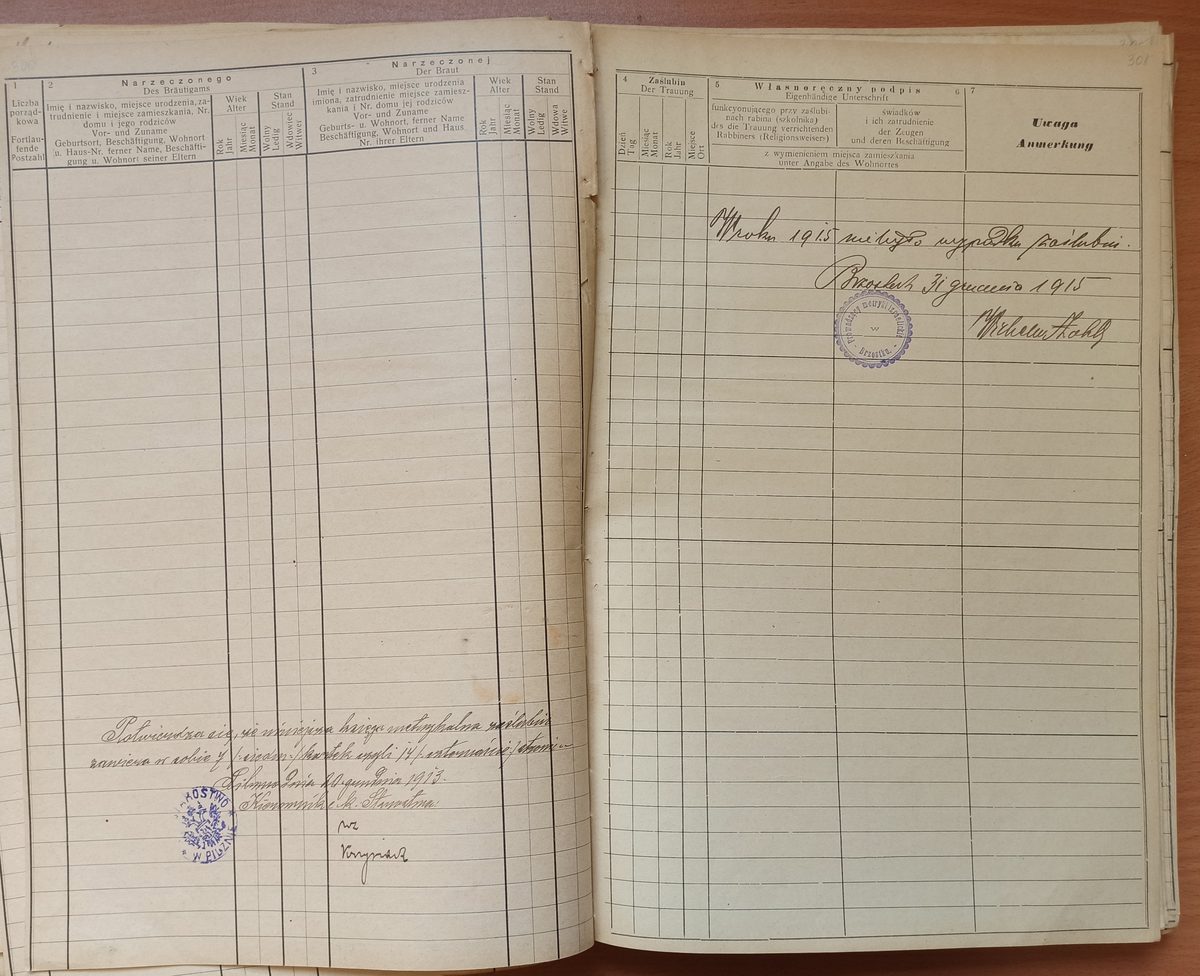 1
Liczba
porząd-
kowa
Fortlau-
fende
Postzahl
2
Narzeczonego
Des Bräutigams
Imię i nazwisko, miejsce urodzenia, za-
trudnienie i miejsce zamieszkania, Nr.
domu i jego rodziców
Vor- und Zuname
Geburtsort, Beschäftigung, Wohnort
u. Haus-Nr. ferner Name, Beschäfti-
gung u. Wohnort seiner Eltern
Wiek
Alter
Rok
Jahr
Miesiąc
Monat
Stan
Stand
Wolny
Ledig
Wdowiec
Witwer
3
Narzeczonej
Der Braut
Imię i nazwisko, miejsce urodzenia
imiona, zatrudnienie miejsce zamiesz-
kania i Nr. domu jej rodziców
Vor- und Zuname
Geburts- u. Wohnort, ferner Name
Beschäftigung, Wohnort und Haus
Nr. ihrer Eltern
Wiek
Alter
Rok
Jahr
Miesiąc
Monat
Stan
Stand
Wolny
Ledig
Wdowa
Witwe
Potwierdza się, że niniejsza księga metrykalna zaślubin
zawiera w sobie 7 /siedm/ kartek czyli 14 /czternaście/ stronic
Pilzno dnia 20 grudnia 1913.
Kierownik c. k. Starostwa:
wz
STAROSTWO
W PILZNIE
301
4
Zaślubin
Der Trauung
Dzień
Tag
Miesiąc
Monat
Rok
Jahr
Miejsce
Ort
5
Własnoręczny podpis
6
Eigenhändige Unterschrift
funkcyonującego przy zaślubi-
nach rabina (szkolnika)
des die Trauung verrichtenden
Rabbiners (Religionsweiser)
świadków
i ich zatrudnienie
der Zeugen
und deren Beschäftigung
z wymienieniem miejsca zamieszkania
unter Angabe des Wohnortes
7
Uwaga
Anmerkung
W roku 1915 nie było wypadku zaślubin.
Brzostek 31 grudnia 1915
Prowadzący metryki izraelickie
w
Brzostku
Wilhelm